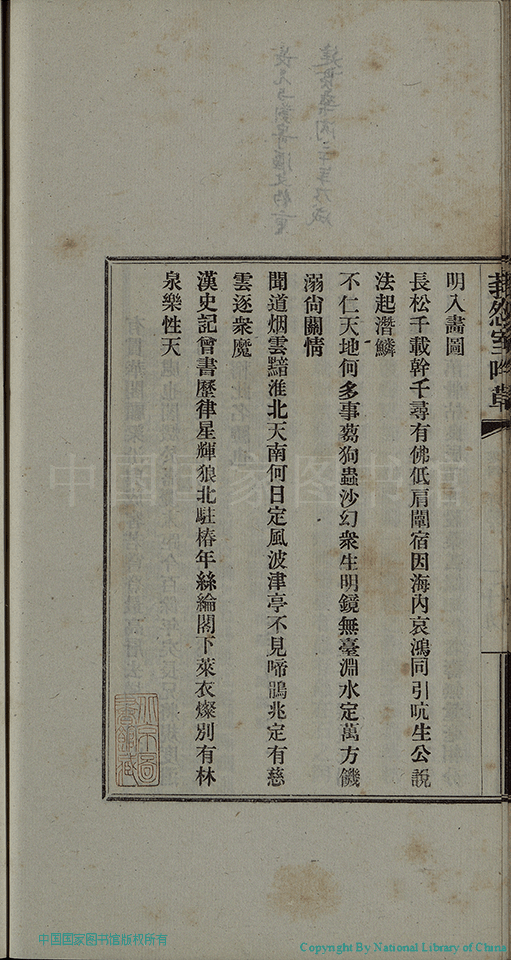 明入畵圖
長松千載幹千尋有佛低肩闡宿因海內哀鴻同引吭生公說
法起潛鱗
不仁天地何多事芻狗蟲沙幻衆生明鏡無臺淵水定萬方饑
溺尙關情
聞道烟雲黯淮北天南何日定風波津亭不見啼鵑兆定有慈
雲逐衆魔
漢史記曾書歷律星輝狼北駐椿年絲綸閣下萊衣燦別有林
泉樂性天
中国国家图书馆
中国国家图书馆版权所有
Copyright By National Library of China